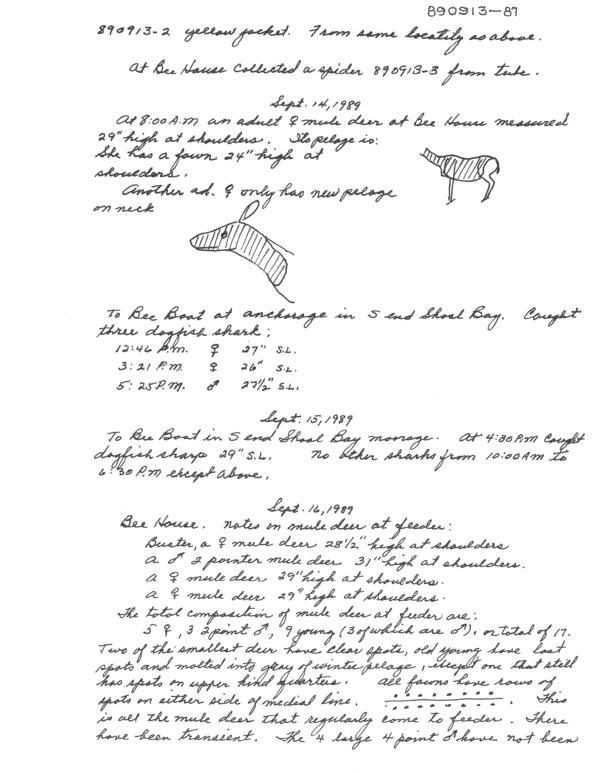 890913-87
890913-2 yellow jacket. From same locatily as above.
At Bee House collected a spider 890913-3 from tube.
Sept. 14, 1989
At 8:00 A.M an adult ♀ mule deer at Bee House measured
29" high at shoulders. Its pelage is:
She has a fawn 24" high at
shoulders.
Another ad. ♀ only has new pelage
on neck
To Bee Boat at anchorage in S end Shoal Bay. Caught
three dogfish shark:
12:46 P.m. ♀ 27" S.L.
3:21 P.M. ♀ 26" S.L.
5:25 P.M. ♂ 27½" S.L.
Sept. 15, 1989
To Bee Boat in S end Shoal Bay morage. At 4:30 P.M caught
dogfish sharp 29" S.L. No other sharks from 10:00 AM to
6:30 P.M except above.
Sept. 16, 1989
Bee House. notes on mule deer at feeder:
Buster, a ♀ mule deer 28½" high at shoulders
a ♂ 2 pointer mule deer 31" high at shoulders.
a ♀ mule deer 29" high at shoulders.
a ♀ mule deer 29" high at shoulders.
The total composition of mule deer at feeder are:
5 ♀, 3 2 point ♂, 9 young (3 of which are ♂), or total of 17.
Two of the smallest deer have clear spots, old young have lost
spots and molted into gray of winter pelage, except one that still
has spots on upper hind quarters. All fawns have rows of
spots on either side of medial line. This
is all the mule deer that regularly come to feeder. There
have been transient. The 4 large 4 point ♂ have not been